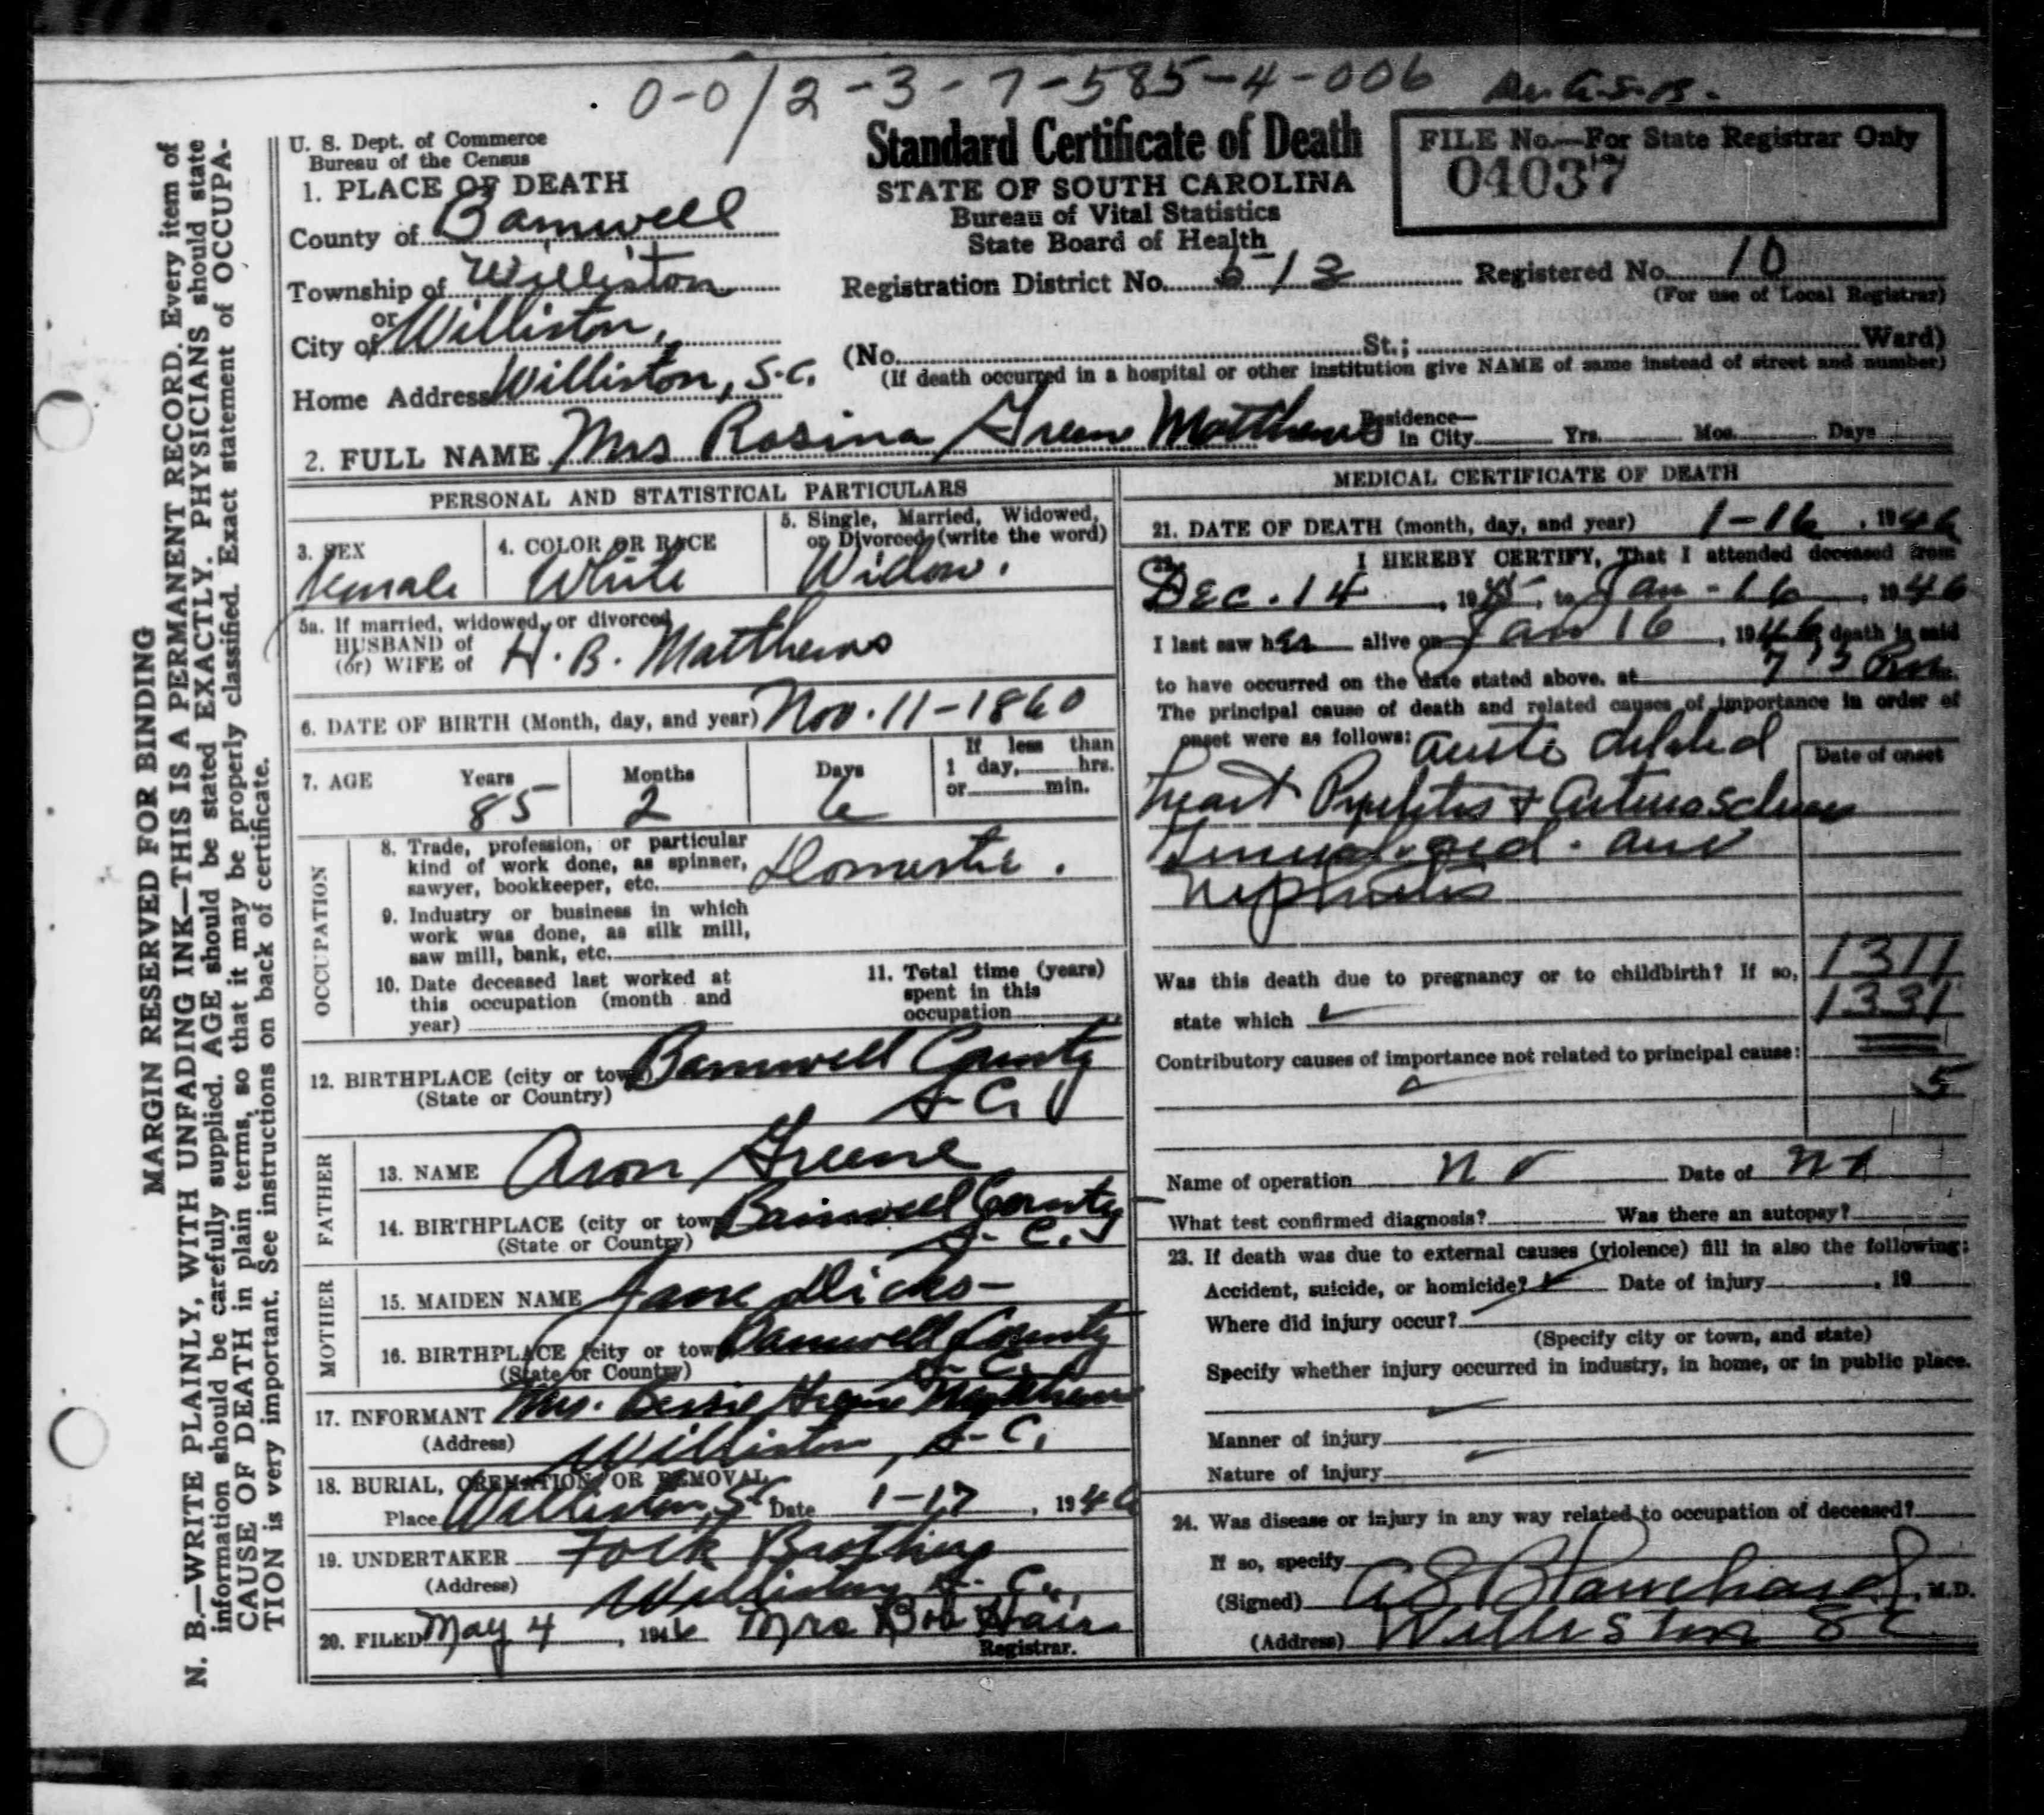 0-0/2-3-7-585-4-006
U. S. Dept. of Commerce
Bureau of the Census
Standard Certificate of Death
STATE OF SOUTH CAROLINA
Bureau of Vital Statistics
State Board of Health
FILE No.—For State Registrar Only
04037
1. PLACE OF DEATH
County of Barnwell
Township of Williston
or
City of Williston,
Home Address Williston, S.C.
Registration District No. 613
Registered No. 10
(For use of Local Registrar)
(No. St.; Ward)
(If death occurred in a hospital or other institution give NAME of same instead of street and number)
2. FULL NAME Mrs Rosina Greene Matthews
Residence—
In City Yrs. Mos. Days
PERSONAL AND STATISTICAL PARTICULARS
3. SEX
female
4. COLOR OR RACE
White
5. Single, Married, Widowed,
or Divorced (write the word)
Widow.
5a. If married, widowed, or divorced
HUSBAND of
(or) WIFE of H. B. Matthews
6. DATE OF BIRTH (Month, day, and year) Nov. 11-1860
7. AGE Years Months Days
85 2 6
If less than
1 day, hrs.
or min.
OCCUPATION
8. Trade, profession, or particular
kind of work done, as spinner,
sawyer, bookkeeper, etc. Domestic.
9. Industry or business in which
work was done, as silk mill,
saw mill, bank, etc.
10. Date deceased last worked at
this occupation (month and
year)
11. Total time (years)
spent in this
occupation
12. BIRTHPLACE (city or town) Barnwell County
(State or Country) S-C.
FATHER
13. NAME Aron Greene
14. BIRTHPLACE (city or town) Barnwell County
(State or Country) S-C.
MOTHER
15. MAIDEN NAME Jane Dicks-
16. BIRTHPLACE (city or town) Barnwell County
(State or Country) S-C.
17. INFORMANT Mrs. Bessie Greene Matthews
(Address) Williston, S-C.
18. BURIAL, CREMATION, OR REMOVAL
Place Williston, S.C. Date 1-17, 1946
19. UNDERTAKER Folk Brothers
(Address) Williston, S. C.
20. FILED May 4, 1946 Mrs Bob Hair
Registrar.
MEDICAL CERTIFICATE OF DEATH
21. DATE OF DEATH (month, day, and year) 1-16, 1946
22. I HEREBY CERTIFY, That I attended deceased from
Dec. 14, 1945, to Jan-16, 1946
I last saw her alive on Jan 16, 1946, death is said
to have occurred on the date stated above, at 7 15 Pm.
The principal cause of death and related causes of importance in order of
onset were as follows: acute dilated
Date of onset
heart Pyelitis +
and
Nephritis
1311
1331
5
Was this death due to pregnancy or to childbirth? If so,
state which
Contributory causes of importance not related to principal cause:
Name of operation no Date of
What test confirmed diagnosis? Was there an autopsy?
23. If death was due to external causes (violence) fill in also the following:
Accident, suicide, or homicide? Date of injury , 19
Where did injury occur?
(Specify city or town, and state)
Specify whether injury occurred in industry, in home, or in public place.
Manner of injury
Nature of injury
24. Was disease or injury in any way related to occupation of deceased?
If so, specify
(Signed) A S Blanchard, M.D.
(Address) Williston S C
MARGIN RESERVED FOR BINDING
N. B.—WRITE PLAINLY, WITH UNFADING INK—THIS IS A PERMANENT RECORD. Every item of
information should be carefully supplied. AGE should be stated EXACTLY. PHYSICIANS should state
CAUSE OF DEATH in plain terms, so that it may be properly classified. Exact statement of OCCUPA-
TION is very important. See instructions on back of certificate.